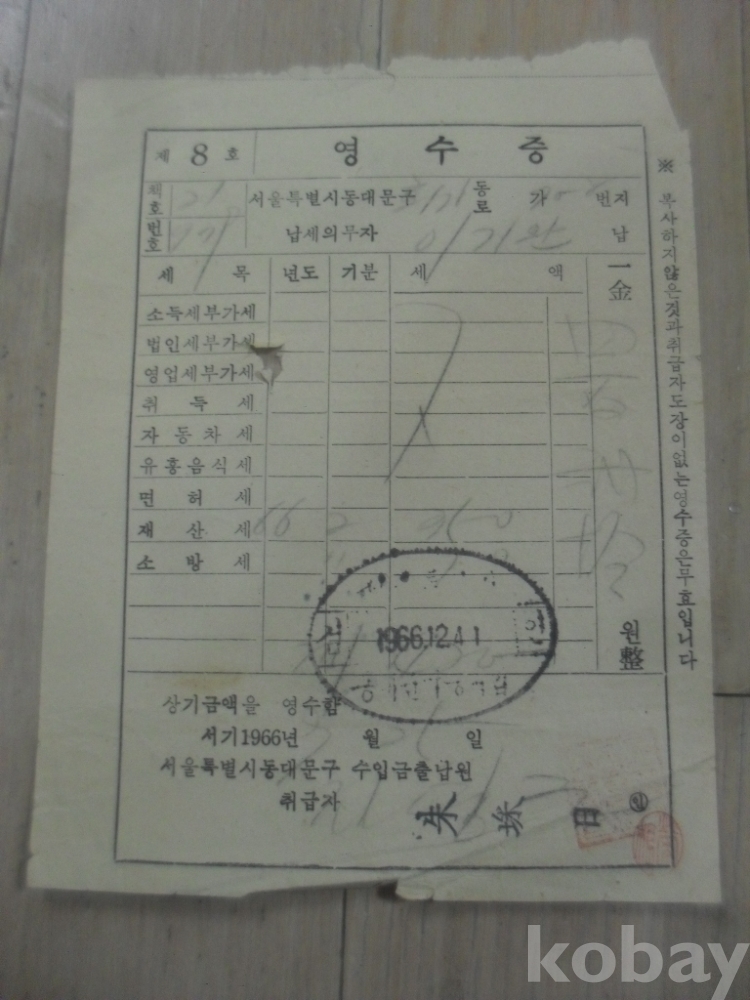 제 8 호 영 수 증
책호 21 서울특별시동대문구 동로 가 번지
번호 납세의무자 이기완 납
세 목 년도 기분 세 액 一金
소득세부가세
법인세부가세
영업세부가세
취 득 세
자 동 차 세
유 흥 음 식 세
면 허 세
재 산 세 66 2 350
소 방 세
1966.12.4 1
원整
상기금액을 영수함
서기1966년 월 일
서울특별시동대문구 수입금출납원
취급자 朱 日 ㊞
※ 복사하지않은것과취급자도장이없는영수증은무효입니다
kobay